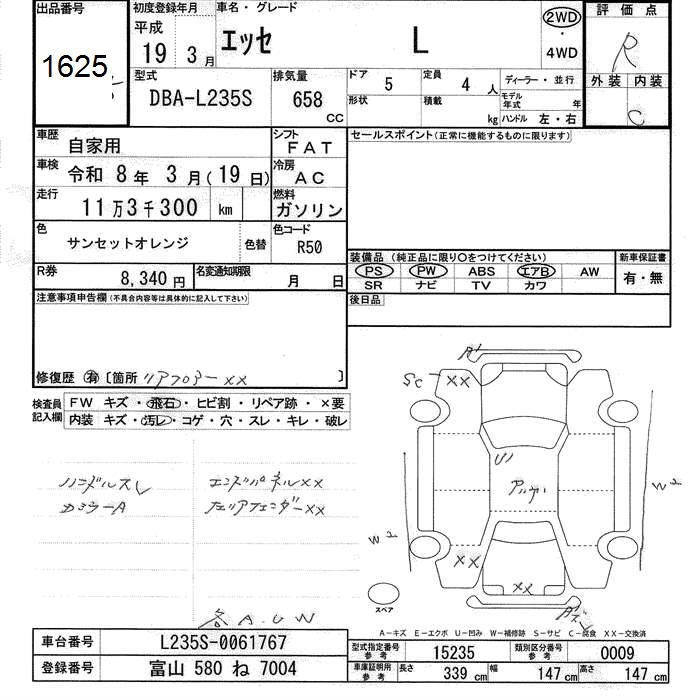 出品番号
1625
初度登録年月
平成
19年 3月
車名・グレード
エッセ L
2WD
・
4WD
評価点
R
外装 内装
C
型式
DBA-L235S
排気量
658
CC
ドア
5
定員
4人
形状
積載
kg
ディーラー・並行
モデル年式 年
ハンドル 左・右
車歴
自家用
シフト
FAT
セールスポイント(正常に機能するものに限ります)
車検
令和 8年 3月(19日)
冷房
AC
走行
11万3千300 km
燃料
ガソリン
色
サンセットオレンジ
色替
色コード
R50
装備品(純正品に限り○をつけてください)
PS PW ABS エアB AW
SR ナビ TV カワ
新車保証書
有・無
R券
8,340円
名変通知期限
月 日
後日品
注意事項申告欄(不具合内容等は具体的に記入して下さい)
修復歴 有 [箇所 リアフロアーXX ]
検査員記入欄
FW キズ・飛石・ヒビ割・リペア跡・×要
内装 キズ・汚レ・コゲ・穴・スレ・キレ・破レ
ハンドルスレ
カミラーA
エンドパネルXX
左リアフェンダーXX
各A.U.W
A1
SC
XX
U1
W2
W2
XX
XX
スペア
A-キズ E-エクボ U-凹み W-補修跡 S-サビ C-腐食 XX-交換済
車台番号
L235S-0061767
登録番号
富山 580 ね 7004
型式指定番号
参考
15235
類別区分番号
参考
0009
車庫証明用
参考
長さ 339 cm 幅 147 cm 高さ 147 cm